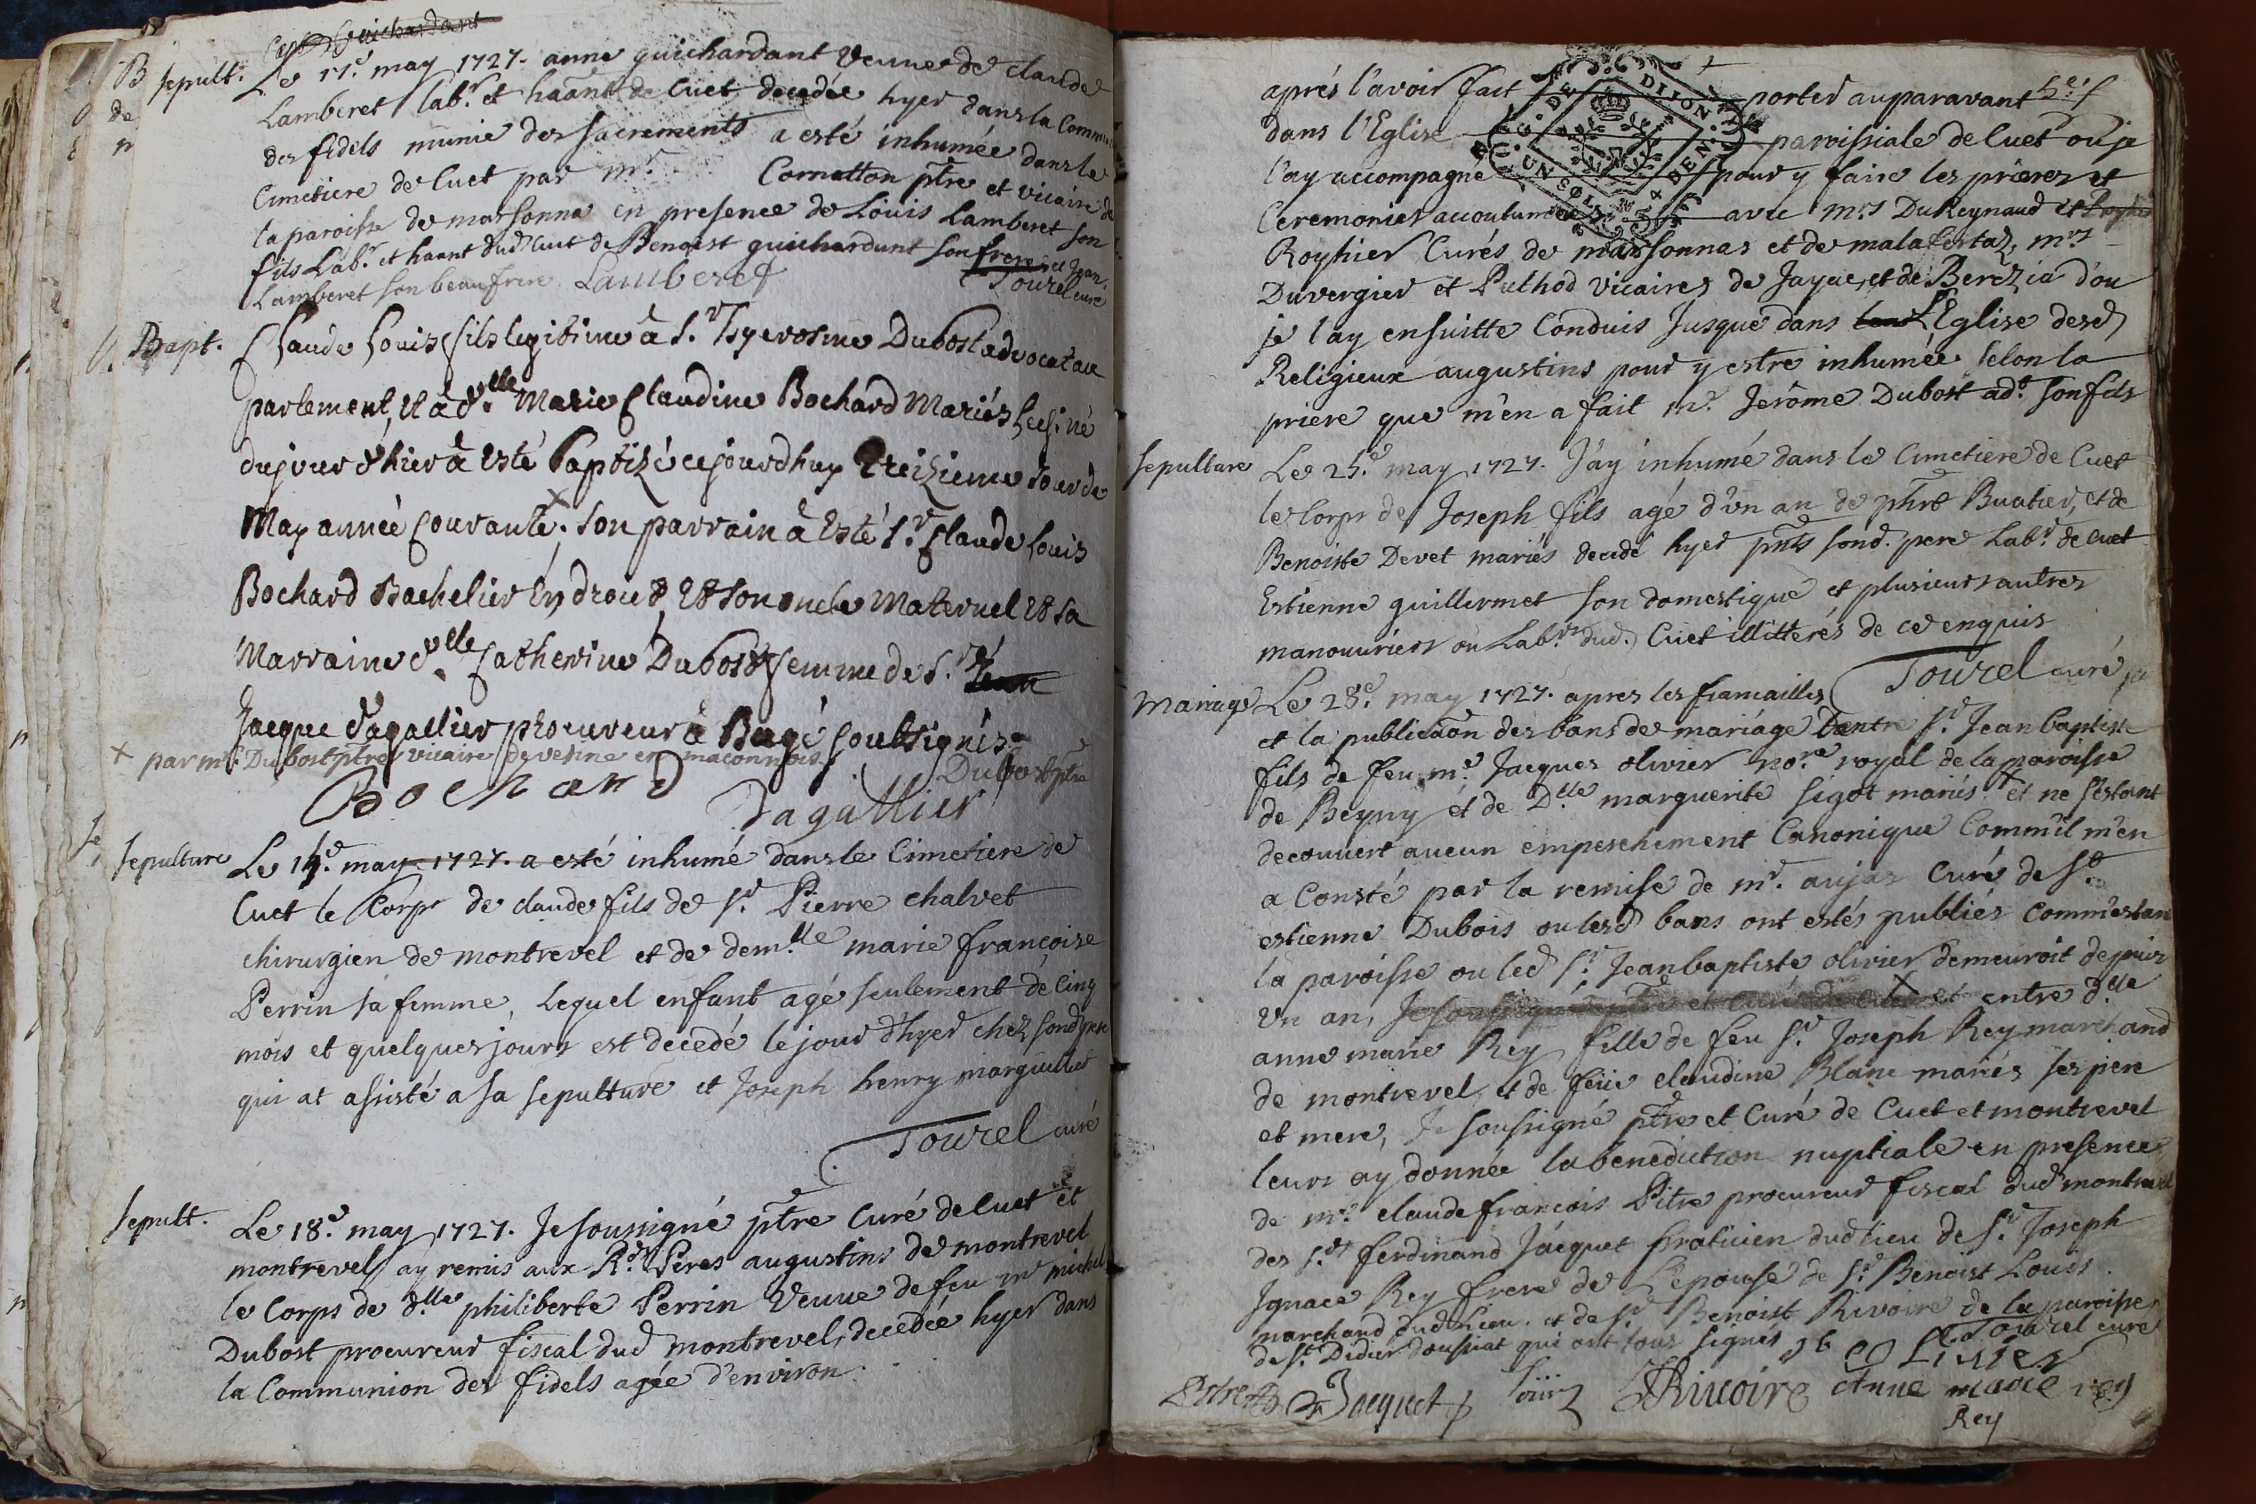 Sepult. Le 11e. may 1727. anne guichardant Veuve de claude
Lamberet lab.r et haãnt de Cuet decedée hyer dans la Commu
des fidels munie des sacrements a esté inhumée dans le
Cimetiere de Cuet par mr. Cornatton ptre et vicaire de
la paroisse de marsonna en presence de Louis Lamberet son
fils Lab.r et haant dud Cuet de Benoist guichardant son frere et Jean
Lamberet son beaufrere Lamberet Tourel curé
Bapt. Claude Louis fils legitime à S.r hyerosme Dubost advocat au
parlement, et à d.lle Marie Claudine Bochard Mariés né
du jour d'hier à Esté baptizé cejourdhuy treizieme Jour de
May année Courante, son parrain à Esté S.r Claude Louis
Bochard Bachelier En droict Et son oncle Maternel Et sa
Marraine d.lle Catherine Dubost femme de S.r
Jacque dagallier procureur à Bagé soubsignés
+ par mr. Dubost ptre vicaire de vesine en maconnois
Dubost ptre
Bochard
Dagallier
Sepulture Le 14e. may 1727. a esté inhumé dans le Cimetiere de
Cuet le Corps de claude fils de S.r Pierre chalvet
chirurgien de montrevel et de dem.lle marie françoise
Perrin sa femme, Lequel enfant agé seulement de Cinq
mois et quelques jours est decedé le jour d'hyer chez sond pere
qui at assisté a sa sepulture et Joseph henry marguillier
Tourel curé
Sepult. Le 18e. may 1727. Je soussigné ptre Curé de Cuet et
montrevel ay remis aux R.ds Peres augustins de montrevel
le Corps de d.lle philiberte Perrin Veuve de feu mr michel
Dubost procureur fiscal dud montrevel, decedée hyer dans
la Communion des fidels agée d'environ
après l'avoir fait porter auparavant
dans l'Eglise paroissiale de Cuet ou je
l'ay accompagné pour y faire les prieres et
Ceremonies accoutumées avec mrs DuReynaud et
Royhier Curés de marsonnas et de malafertaz, mrs
Duvergier et Puthod vicaires de Jayac, et de Berezia d'ou
je l'ay ensuitte Conduis Jusque dans L'Eglise desd
Religieux augustins pour y estre inhumée selon la
priere que m'en a fait mr. Jerôme Dubost ad.t son fils
Sepulture Le 25e. may 1727. J'ay inhumé dans le Cimetiere de Cuet
le Corps de Joseph fils agé d'un an de phrt Buatier, et de
Benoiste Devet mariés decedé hyer pnts sond. pere Lab.r de Cuet
Estienne guillermet son domestique et plusieurs autres
manouvriers ou Lab.rs dud. Cuet illitterés de ce enquis
Tourel curé
Mariage Le 28e. may 1727. apres les fiancailles
et la publicãon des bans de mariage d'entre S.r Jean baptiste
fils de feu mr. Jacques olivier no.re royal de la paroisse
de Beyny et de D.lle marguerite Sigot mariés + et ne s'estant
decouvert aucun empeschement Canonique Comm'il m'en
a Consté par la remise de mr. aujas Curé de St.
estienne Dubois ou lesd bans ont estés publiés Comm'estant
la paroisse ou led S.r Jeanbaptiste olivier demeuroit depuis
Un an, + et entre d.lle
anne marie Rey fille de feu S.r Joseph Rey marchand
de montrevel, et de feüe claudine Blanc mariés ses pere
et mere, Je soussigné ptre et Curé de Cuet et montrevel
leurs ay donnée la benediction nuptiale en presence
de mr. claude françois Pitre procureur fiscal dud montrevel
des S.rs ferdinand Jacquet praticien dud lieu de S.r Joseph
Ignace Rey frere de L'epouse de S.r Benoist Louis
marchand dud Lieu. et de S.r Benoist Rivoire de la paroisse
de St Didier doussiat qui ont tous signés
Tourel curé
olivier
Pitre Jacquet Rivoire Anne marie rey
Rey